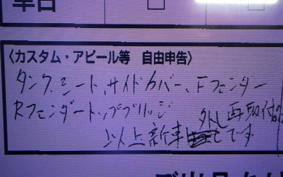 車台
〈カスタム・アピール等 自由申告〉
タンク、シート、サイドカバー、Fフェンダー
Rフェンダートップブリッジ 外し再取付け
以上新車です